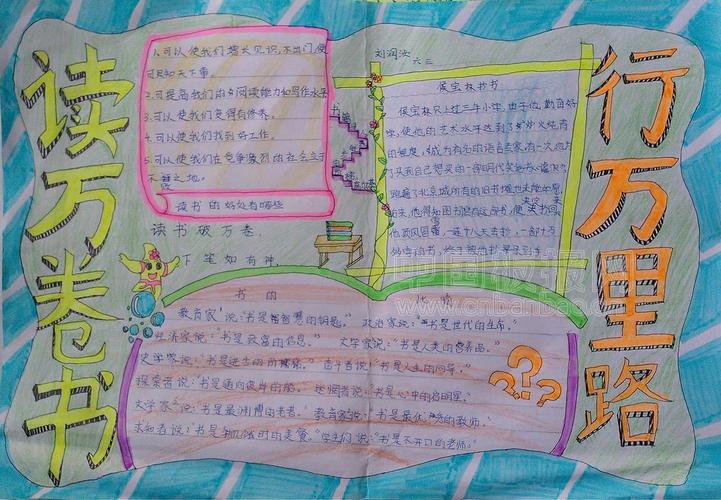 读万卷书
行万里路
刘润汝
六三
1.可以使我们增长见识,不出门,便
可知天下事。
2.可提高我们的阅读能力和写作水平
3.可以使我们变得有修养。
4.可以使我们找到好工作。
5.可以使我们在竞争激烈的社会立于
不败之地。
读书的好处有哪些
读书破万卷,
下笔如有神。
侯宝林抄书
侯宝林只上过三年小学,由于他勤奋好
学,使他的艺术水平达到了炉火纯青
的程度,成为有名的语言专家,有一次,他为
了买到自己想买的一部明代笑话书
跑遍了北京城所有的旧书摊也未能如愿。
后来,他得知图书馆有这部书,便决定
他顶风冒雪,一连十八天去抄,一部十多
万字的书,终于被他
书的
教育家说:“书是智慧的钥匙。”
政治家说:“书是时代的生命。”
经济家说:“书是致富的信息。”
文学家说:“书是人类的营养品。”
史学家说:“书是进步的阶梯。”
奋斗者说:“书是人生的向导。”
探索者说:“书是通向彼岸的船。”
迷惘者说:“书是心中的启明星。”
文学家说:“书是最渊博的老者。”
教育家说:“书是最优秀的教师。”
求知者说:“书是饥饿时的美餐。”
学生们说:“书是不开口的老师。”
中国板报网
www.cnbanbao.c